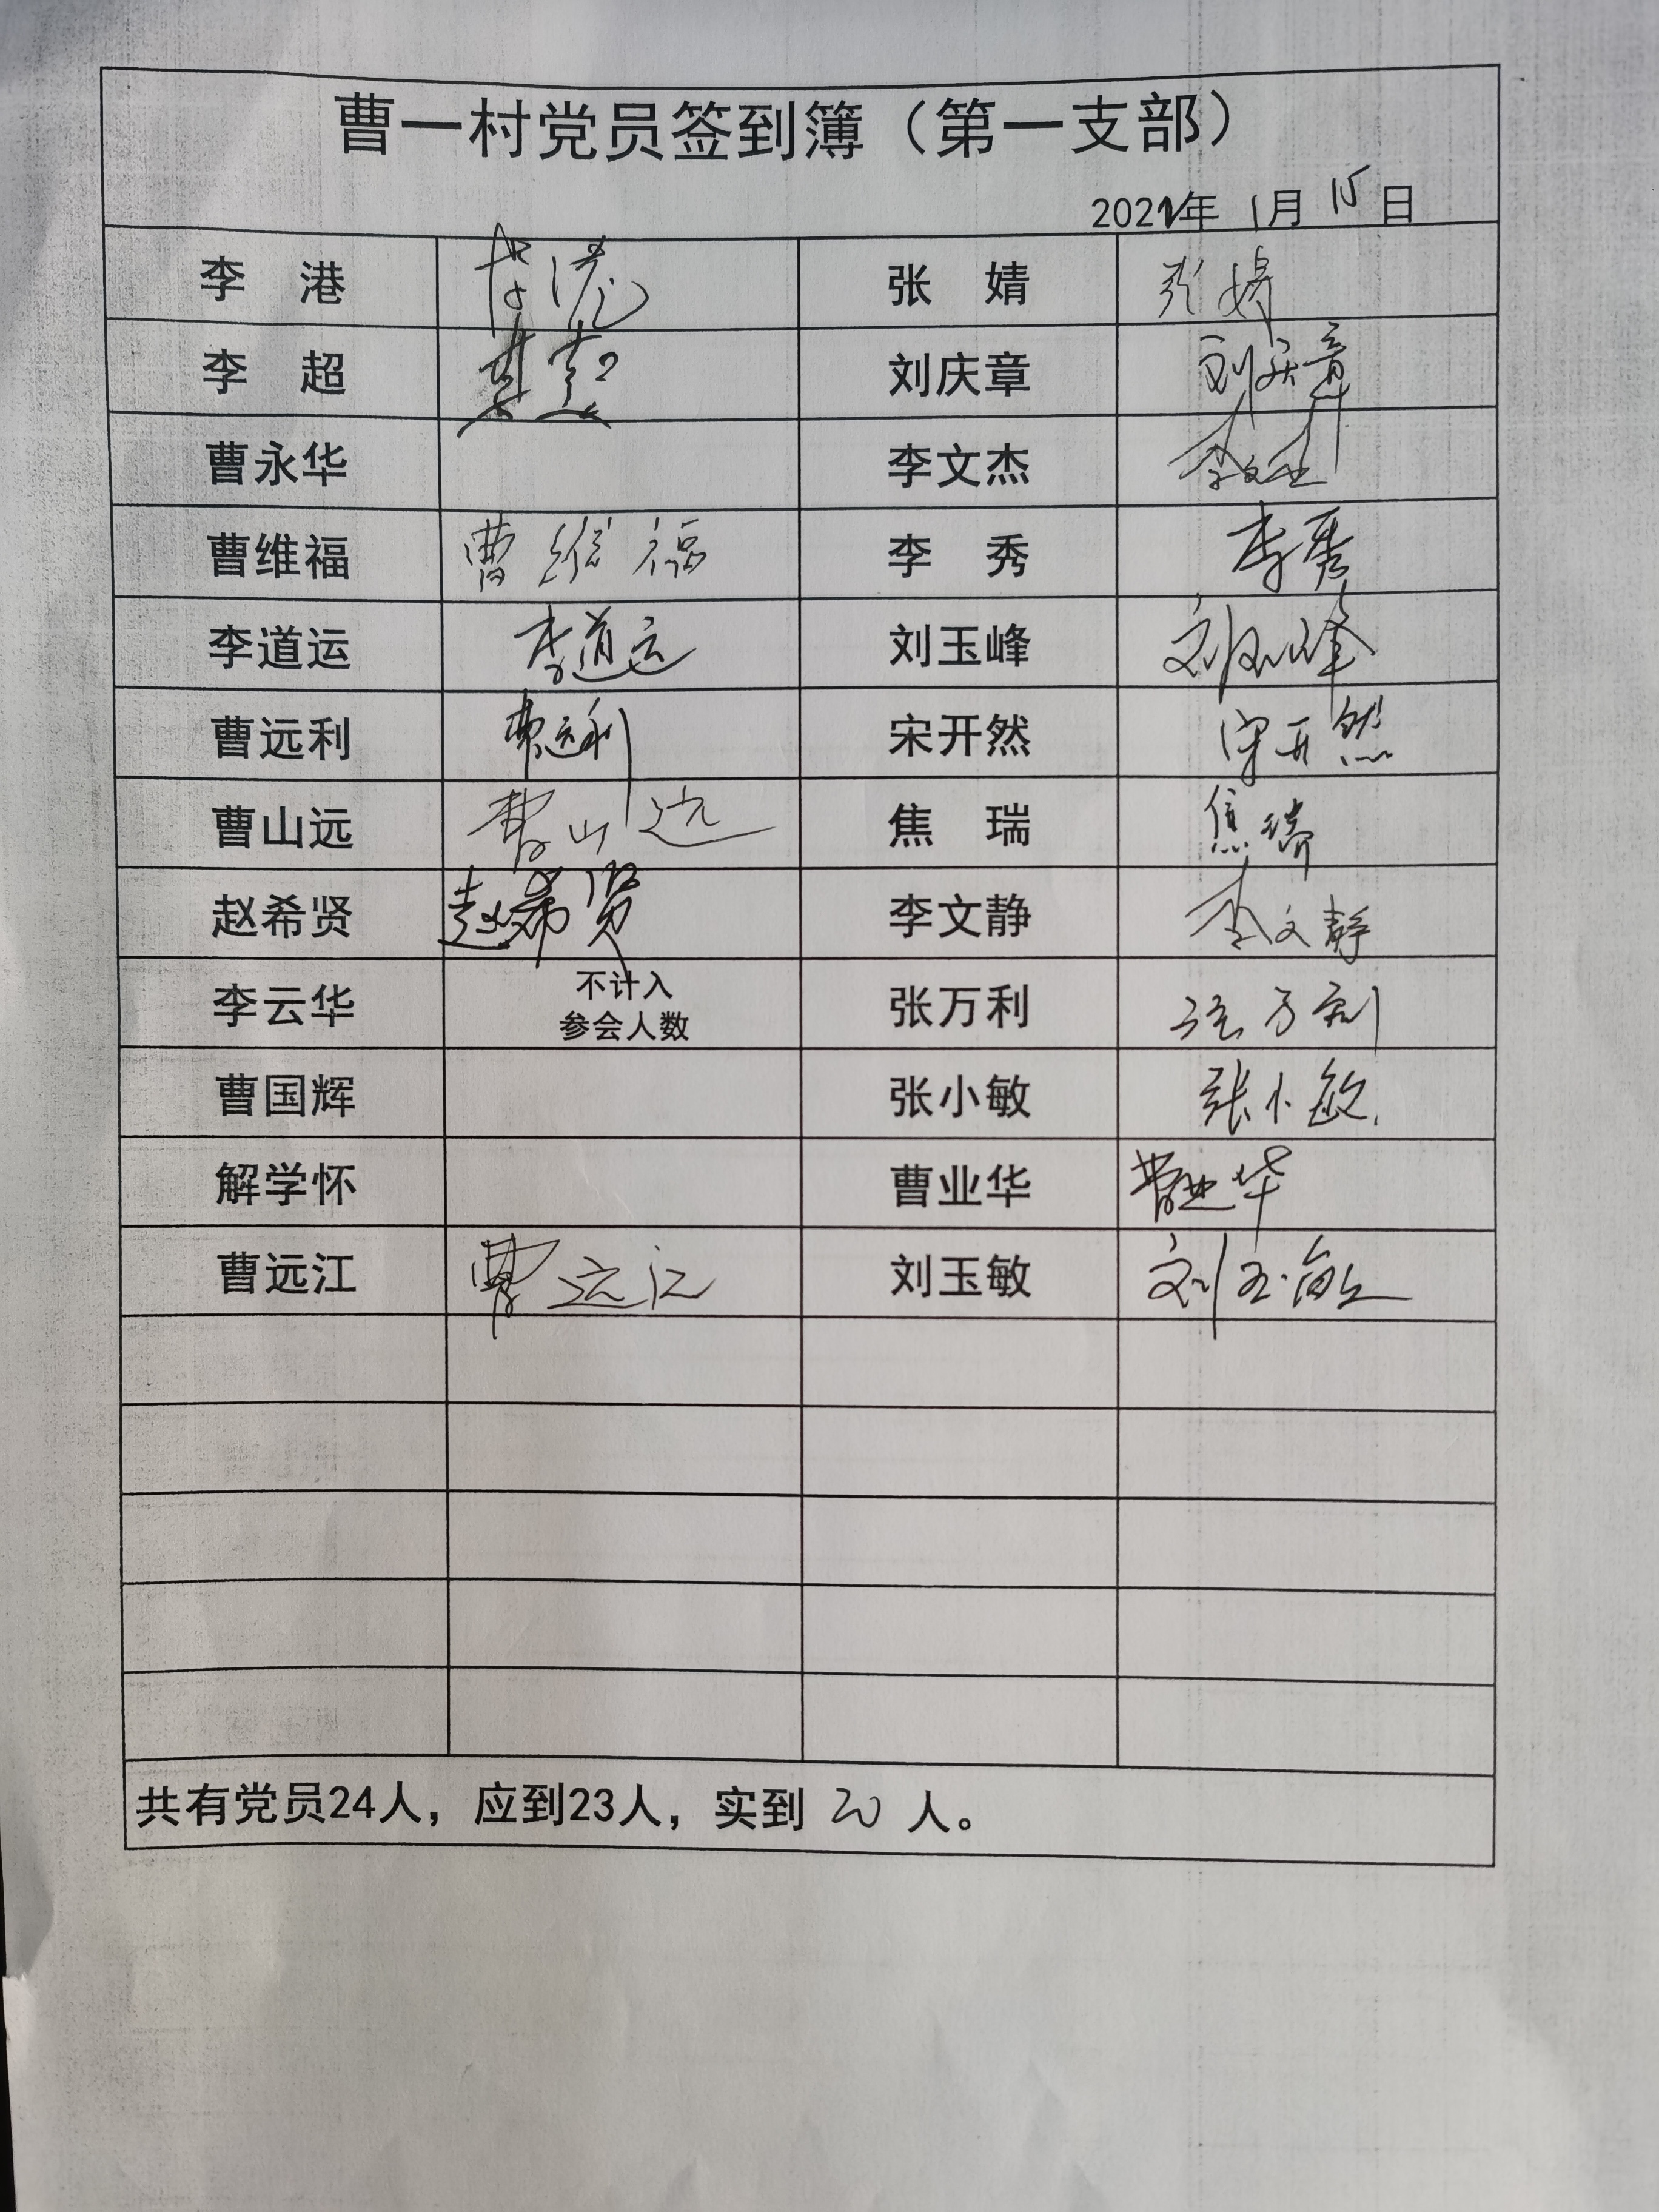 曹一村党员签到簿（第一支部）
2022年 1月 15日
李 港 李港 张 婧 张婧
李 超 李超 刘庆章 刘庆章
曹永华 李文杰 李文杰
曹维福 曹维福 李 秀 李秀
李道运 李道运 刘玉峰 刘玉峰
曹远利 曹远利 宋开然 宋开然
曹山远 曹山远 焦 瑞 焦瑞
赵希贤 赵希贤 李文静 李文静
李云华 不计入 张万利 张万利
参会人数
曹国辉 张小敏 张小敏
解学怀 曹业华 曹业华
曹远江 曹远江 刘玉敏 刘玉敏
共有党员24人，应到23人，实到 20 人。